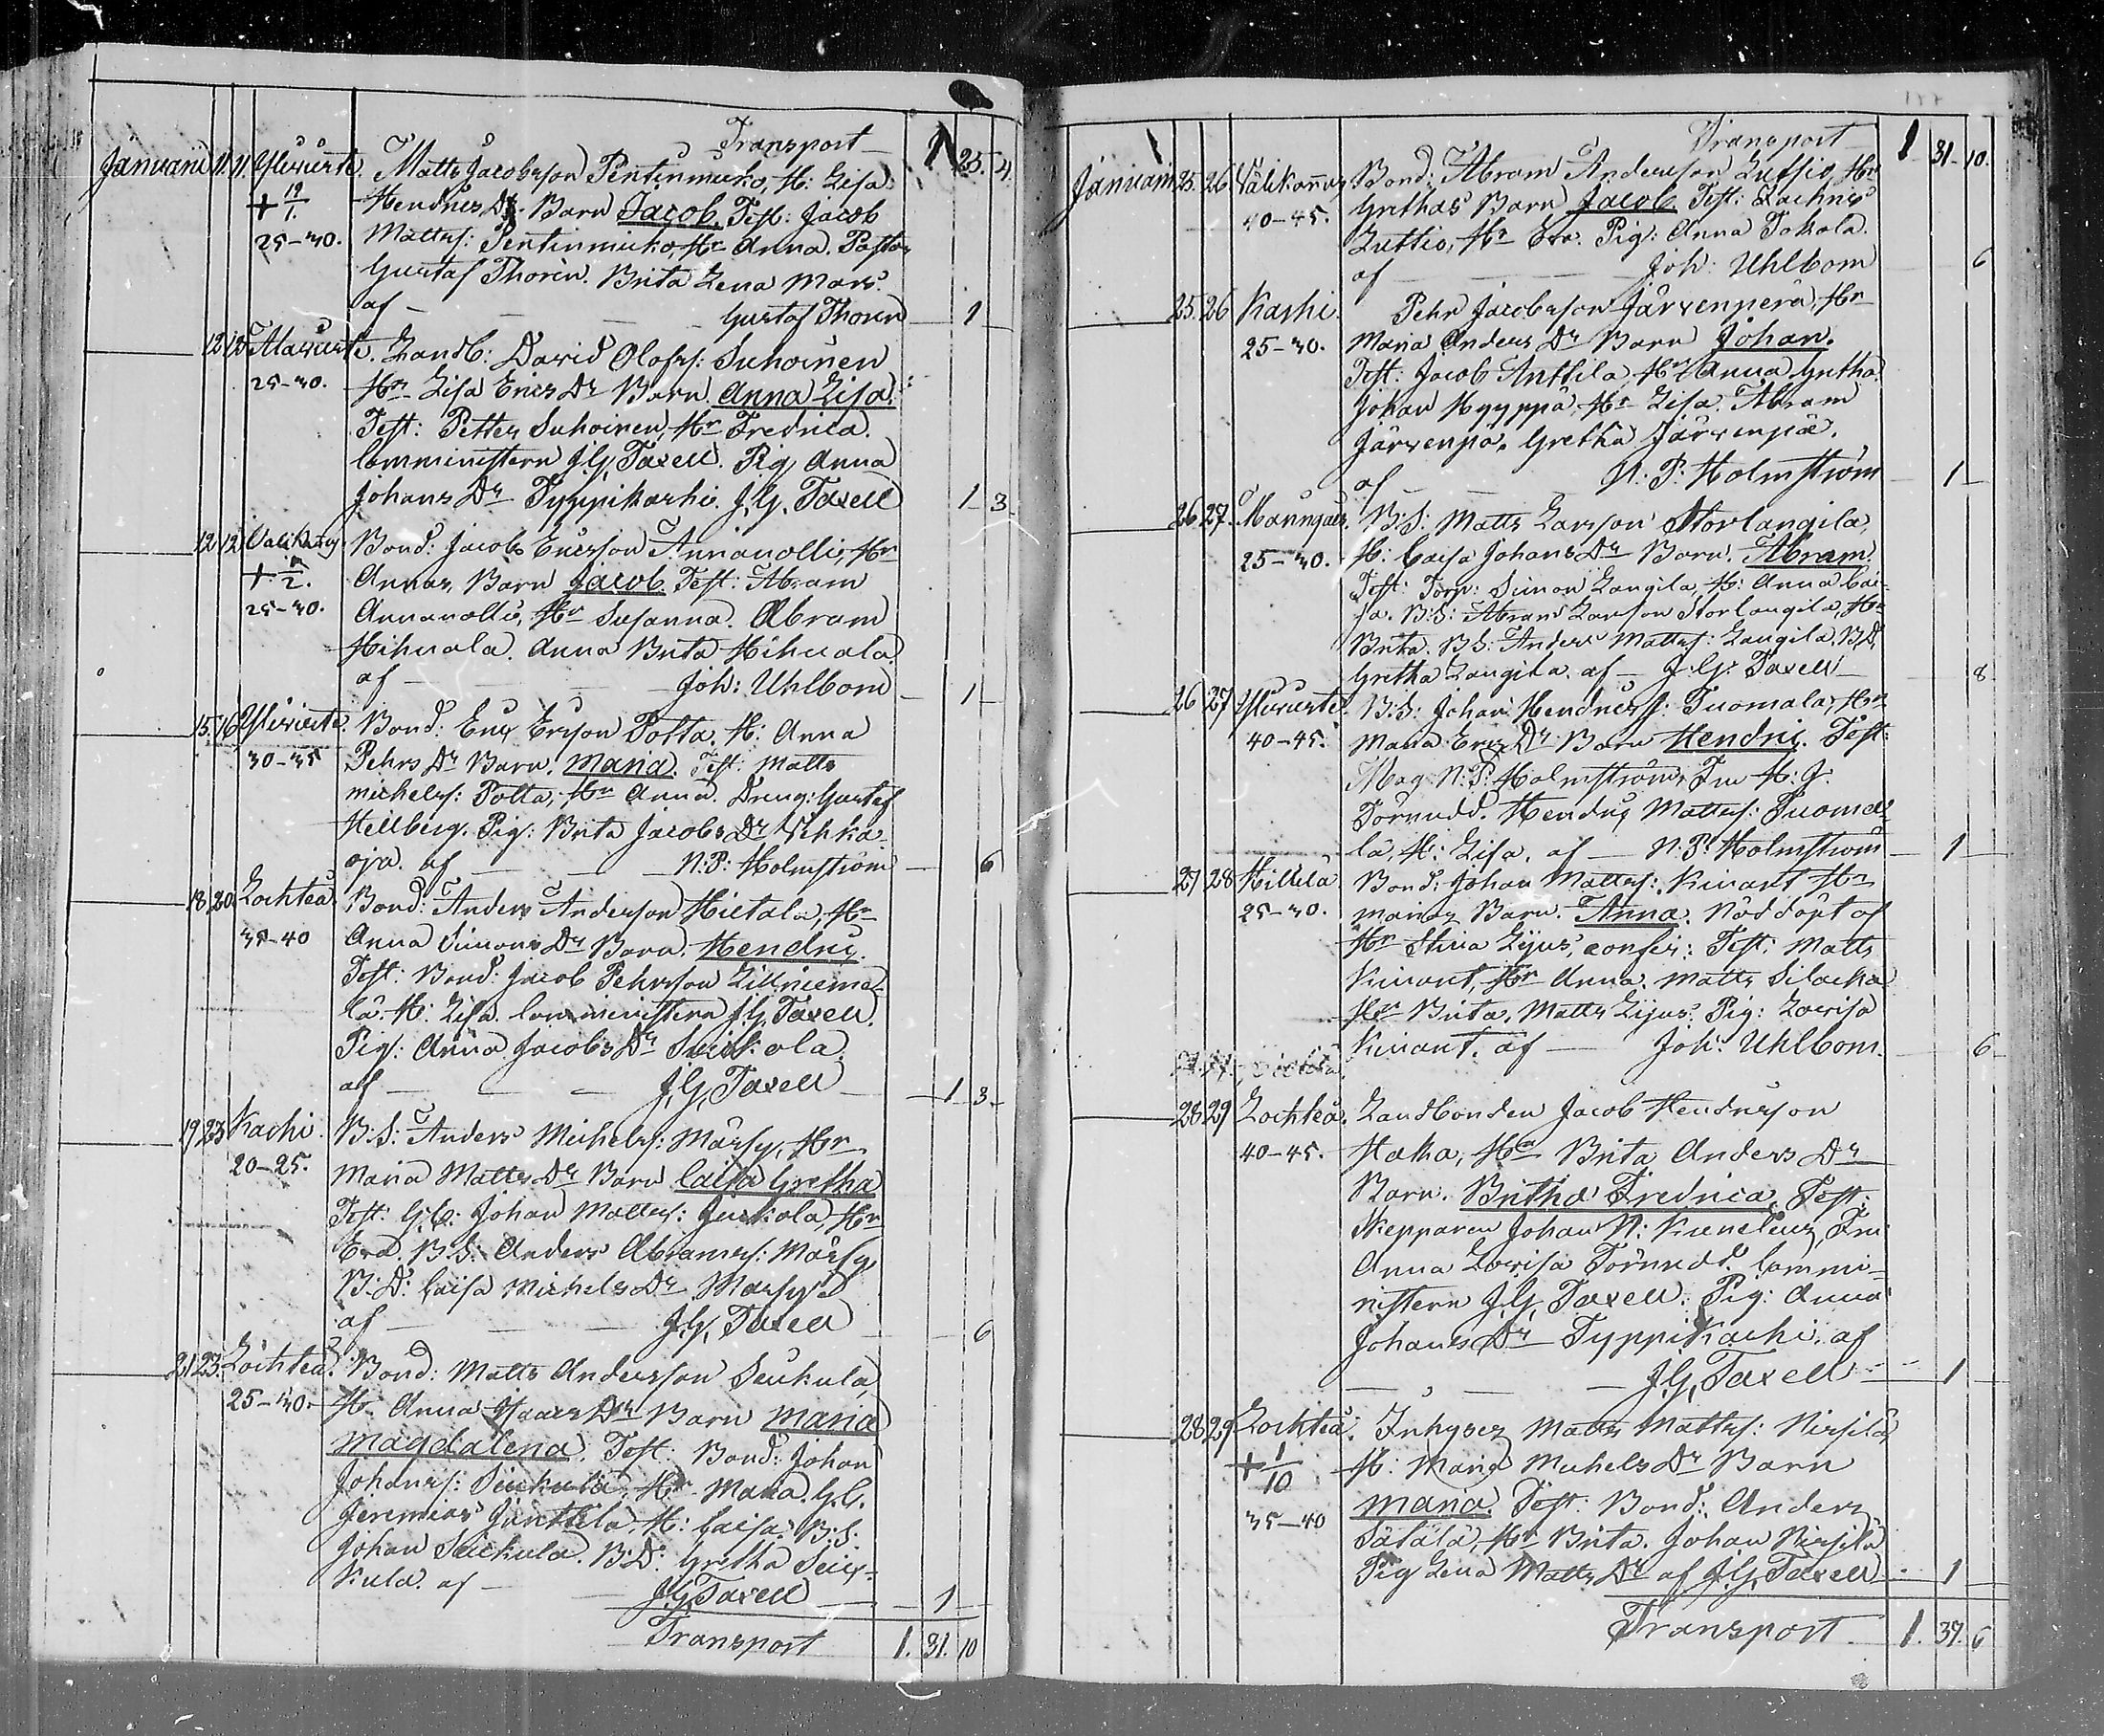 Transport 1 23. 4.
Januarii 11. 11. Yliviirte. Matts Jacobsson Penttinmuko, H: Lisa
+ 19/1. Hendrics Dr Barn Jacob. Test: Jacob
25-30. Mattss: Pentinmuko, Hr Anna. Pastor
Gustaf Thorén. Brita Lena Mars.
af — Gustaf Thorén 1
12 13 Alaviirte. Landb: David Olofss: Suhoinen
25-30. Hr Lisa Erics Dr Barn. Anna Lisa.
Test: Petter Suhoinen, Hr Fredrica.
Comministern J. G. Taxell. Pig. Anna
Johans Dr Typpikarhi. J. G. Taxell 1 3
12 12 Välikang. Bond: Jacob Ericsson Annanolli, Hr
Annas, Barn Jacob. Test: Abram
25-30. Annanolli, Hr Susanna. Abram
Hihnala. Anna Brita Hihnala.
af — Joh: Uhlbom 1
15. 16 Yliviirte. Bond: Eric Ericson Potta. H: Anna
30-35 Pehrs Dr Barn. Maria. Test: Matts
Michelss: Potta, Hr Anna. Dreng: Gustaf
Hellberg. Pig: Brita Jacobs Dr Vehka-
oja. af — N: P: Holmström 6
18. 20. Lochteå Bond: Anders Andersson Hietala, Hr
35-40 Anna Simons Dr Barn. Hendric.
Test: Bond: Jacob Pehrsson Lillniema-
la H: Lisa. Comministern J. G. Taxell.
Pig: Anna Jacobs Dr
af — J. G. Taxell 1 3
19 23 Karhi. B: S: Anders Michelss: Märsy, Hr
20-25. Maria Matts Dr Barn Caisa Gretha
Test: G. B: Johan Mattss: Juckola, Hr
Eva. B: S: Anders Abramss: Märsy,
B: D: Caisa Michels Dr Märsy
af — J. G. Taxell 6
21 23. Lochteå. Bond: Matts Andersson Seukula,
25-30. Hr Anna Isaacs Dr Barn Maria
Magdalena. Test: Bond: Johan
Johanss: Seukula, Hr Maria. G. C.
Jeremias Junttila, H: Caisa. B: S:
Johan Seukula. B: D: Gretha Seu-
kula. af — J. G. Taxell 1
Transport 1. 31. 10
Transport 1 31. 10.
Januarii 25. 26 Välikannus Bond: Abram Andersson Luttio, Hr
40-45. Grethas Barn Jacob Test: Zachris
Luttio, Hr Eva. Pig: Anna Tokola.
af — Joh: Uhlbom 6
25. 26 Karhi Pehr Jacobsson Järvenperä, Hr
25-30. Maria Anders Dr Barn Johan.
Test: Jacob Anttila, Hr Anna Gretha.
Johan Hyyppä, Hr Lisa. Abram
Järvenpä. Gretha Järvenpä.
af N: P: Holmström 1
26 27. B: S: Matts Larsson Storlangila,
25-30. H: Caisa Johans Dr Barn. Abram
Test: Torp: Simon Langila, H: Anna Cai-
sa. B: S: Abram Larsson Storlangila, Hr
Brita. B: S: Anders Mattss: Langila, B: D:
Gretha Langila. af — J. G. Taxell 8
26 27 Yliviirte. B: S: Johan Hendricss: Tuomala, Hr
40-45. Maria Erics Dr Barn Hendric. Test:
Mag. N: P: Holmström, Fru H: J:
Törnudd. Hendric Mattss: Tuoma-
la, H: Lisa. af — N: P: Holmström 1
27 28 Hillilä Bond: Johan Mattss: Kivant Hr
25-30. Marias Barn. Anna. Nöddöpt af
Hr Stina Lijus, confir: Test: Matts
Kivant, Hr Anna. Matts Silacka
Hr Brita. Matts Lijus. Pig: Lovisa
Kivant. af — Joh: Uhlbom. 6
28 29 Lochteå. Landbonden Jacob Hendersson
40-45. Haka, Hr Brita Anders Dr
Barn. Britha Fredrica, Test:
Skepparen Johan N: Kunelius, Fru
Anna Lovisa Törnudd. Commi-
nistern J. G. Taxell. Pig: Anna
Johans Dr Typpikarhi. af
J. G. Taxell 1
28. 29 Lochteå. Inhyses Matts Mattss: Nirsilä,
+ 1/10 H: Maria Michels Dr Barn
35-40 Maria. Test: Bond: Anders
Sälälä, Hr Brita. Johan Nirsilä
Pig Lena Matts Dr af J. G. Taxell 1
Transport 1. 37. 6